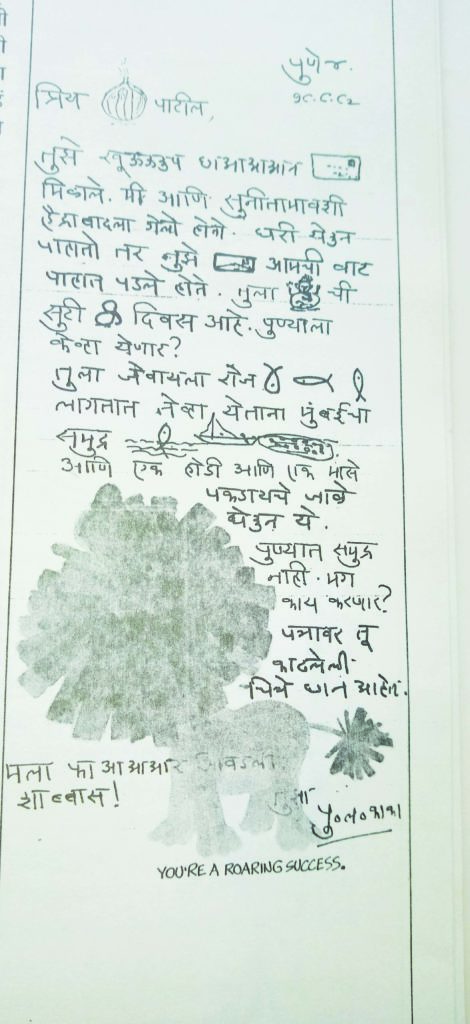 पुणे ४.
१८.८.८२
प्रिय पाटील,
तुझे खूऊऊऊप छाआआआआन
मिळाले. मी आणि सुनीतामावशी
हैद्राबादला गेलो होतो. घरी येऊन
पाहातो तर तुझे आमची वाट
पाहात पडले होते. तुला ची
सुट्टी 8 दिवस आहे. पुण्याला
केव्हा येणार?
तुला जेवायला रोज
लागतात तेव्हा येताना मुंबईचा
समुद्र
आणि एक होडी आणि एक मासे
पकडायचे जाळे
घेऊन ये.
पुण्यात समुद्र
नाही. मग
काय करणार?
पत्रावर तू
काढलेली
चित्रे छान आहेत.
मला फाआआआआर आवडली.
शाब्बास!
तुझा
पु०ल०काका
YOU'RE A ROARING SUCCESS.